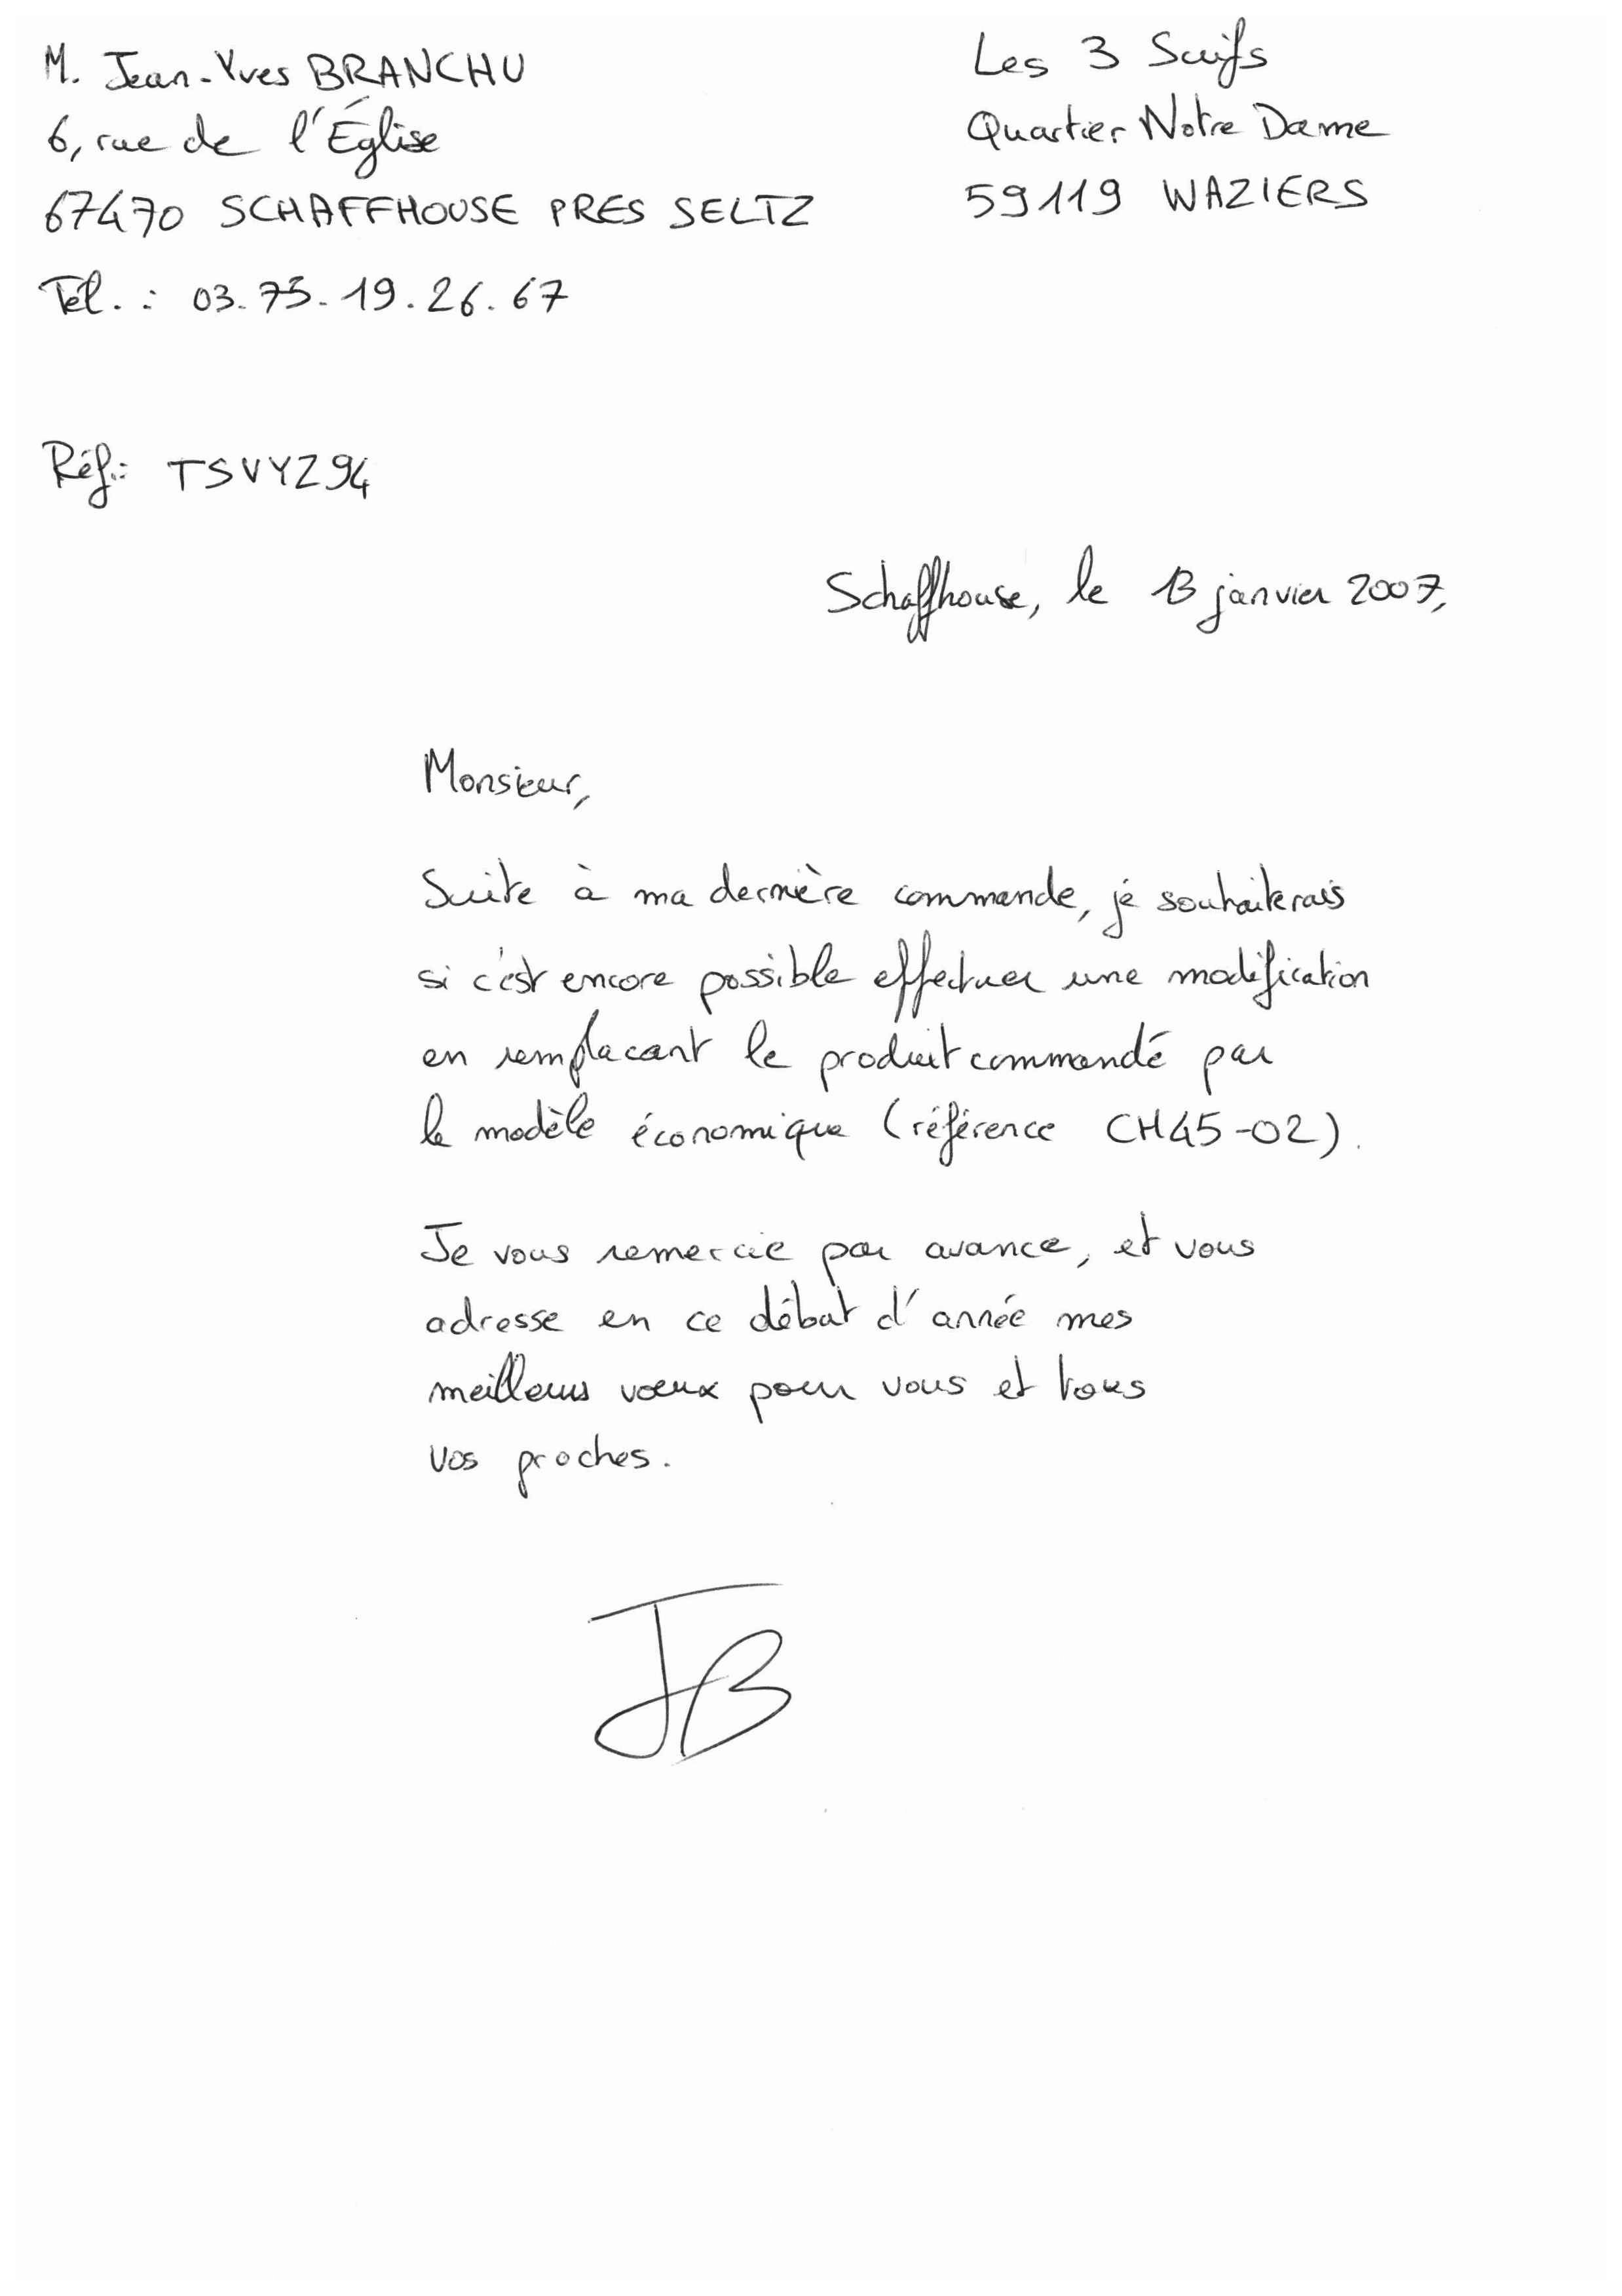 M. Jean-Yves BRANCHU
6, rue de l'Église
67470 SCHAFFHOUSE PRES SELTZ
Tél. : 03.75.19.26.67
Les 3 Suifs
Quartier Notre Dame
59119 WAZIERS
Réf.: TSVYZ94
Schaffhouse, le 13 janvier 2007,
Monsieur,
Suite à ma dernière commande, je souhaiterais
si c'est encore possible effectuer une modification
en remplacant le produit commandé par
le modèle économique (référence CH45-02).
Je vous remercie par avance, et vous
adresse en ce début d'année mes
meilleurs vœux pour vous et tous
vos proches.
JB